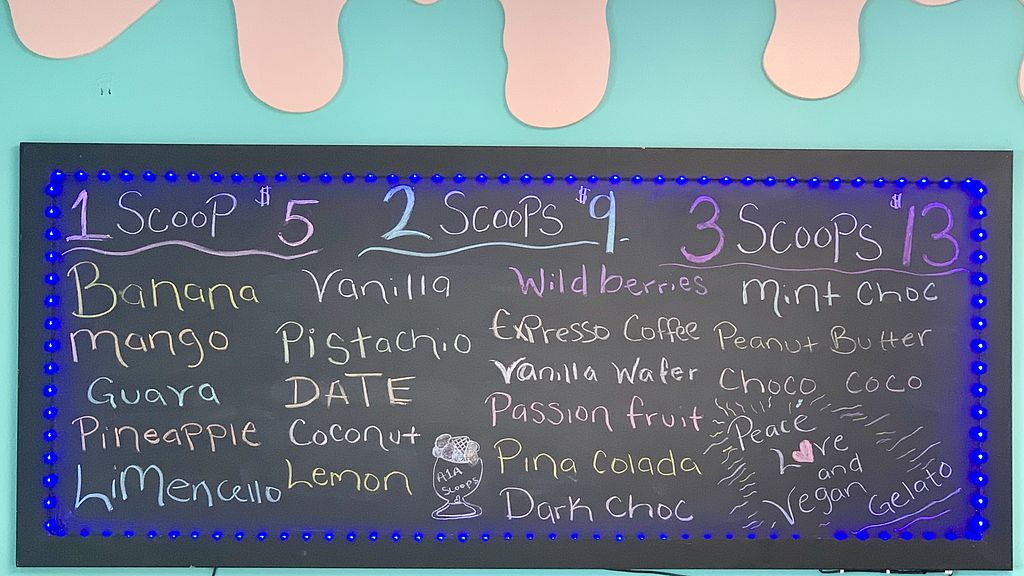 1 Scoop $5
2 Scoops $9.
3 Scoops $13
Banana
mango
Guava
Pineapple
LiMencello
Vanilla
Pistachio
DATE
Coconut
Lemon
A1A
Scoops
Wild berries
ExPresso Coffee
Vanilla Wafer
Passion fruit
Pina Colada
Dark Choc
Mint Choc
Peanut Butter
Choco Coco
Peace
Love
and
Vegan Gelato